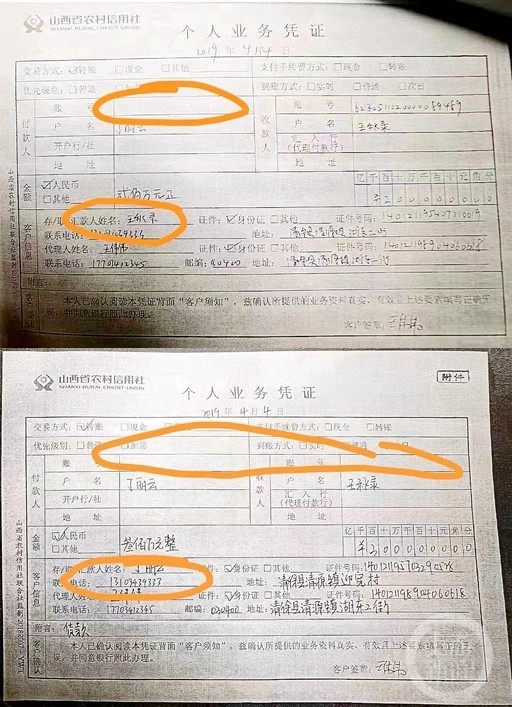 山西省农村信用社
SHANXI RURAL CREDIT UNION
个人业务凭证
2019年4月4日
交易方式：☑转账 □现金 □其他 支付手续费方式：□现金 □转账
优先级别：□普通 到账方式：□实时 □普通 □次日
付款人
账号
户名 丁丽云
开户行/社
地址
收款人
账号
户名 王秋录
汇入行
(代理付款行)
地址
金额
☑人民币
□其他
贰佰万元正
亿千百十万千百十元角分
¥200000000
客户信息
存/取/汇款人姓名： 证件：☑身份证 □其他 证件号码：
联系电话： 地址：清徐县清源镇湖东二街
代理人姓名：王伟伟 证件：☑身份证 □其他 证件号码：
联系电话：17703412345 邮编：030400 地址：清徐县清源镇湖东二街
附言：
客户确认
本人已确认阅读本凭证背面“客户须知”，兹确认所提供的业务资料真实、有效且上述要素填写正确无
误，并同意银行照此办理。
客户签章：王伟伟
山西省农村信用社联合社监制
山西省农村信用社
SHANXI RURAL CREDIT UNION
附件
个人业务凭证
2019年4月4日
交易方式：☑转账 □现金 □其他 支付手续费方式：□现金 □转账
优先级别：□普通 □加急 到账方式：□实时 □普通
付款人
账
户名 丁丽云
开户行/社
地址
收款人
账号
户名 王秋录
汇入行
(代理付款行)
地址
金额
☑人民币
□其他
叁佰万元整
亿千百十万千百十元角分
¥300000000
客户信息
存/取/汇款人姓名：丁丽云 证件：☑身份证 □其他 证件号码：
联系电话：13103439333 地址：清徐县清源镇迎宪村
代理人姓名： 证件：☑身份证 □其他 证件号码：
联系电话：17703412345 邮编：030400 地址：清徐县清源镇湖东二街
附言：货款
客户确认
本人已确认阅读本凭证背面“客户须知”，兹确认所提供的业务资料真实、有效且上述要素填写正确无
误，并同意银行照此办理。
客户签章：王伟伟
山西省农村信用社联合社监制